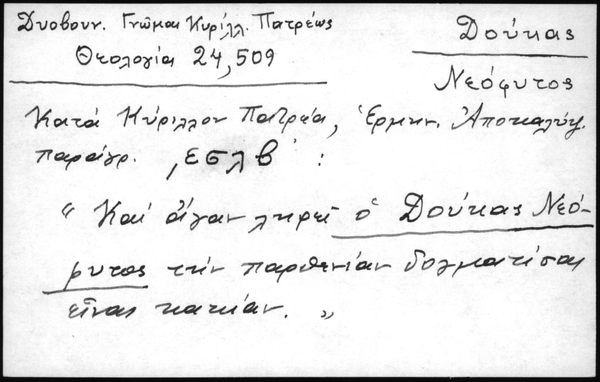 Δυοβουν. Γνῶμαι Κυρίλλ. Πατρέως
Θεολογία 24,509
Δούκας
Νεόφυτος
Κατά Κύριλλον Πατρέα, Ἑρμην. Ἀποκαλύψ.
παραγρ. ͵εσλβ΄ :
" Καί ἄγαν ληρεῖ ὁ Δούκας Νεό-
φυτος τήν παρθενίαν δογματίσας
εἶναι κακίαν. "